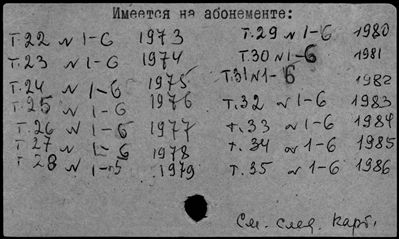 Имеется на абонементе:
Т.22 N 1-6 1973
Т.23 N 1-6 1974
Т.24 N 1-6 1975
Т.25 N 1-6 1976
Т.26 N 1-6 1977
Т.27 N 1-6 1978
Т.28 N 1-5 1979
Т.29 N 1-6 1980
Т.30 N 1-6 1981
Т.31 N 1-6 1982
Т.32 N 1-6 1983
Т.33 N 1-6 1984
Т.34 N 1-6 1985
Т.35 N 1-6 1986
См. след. карт.